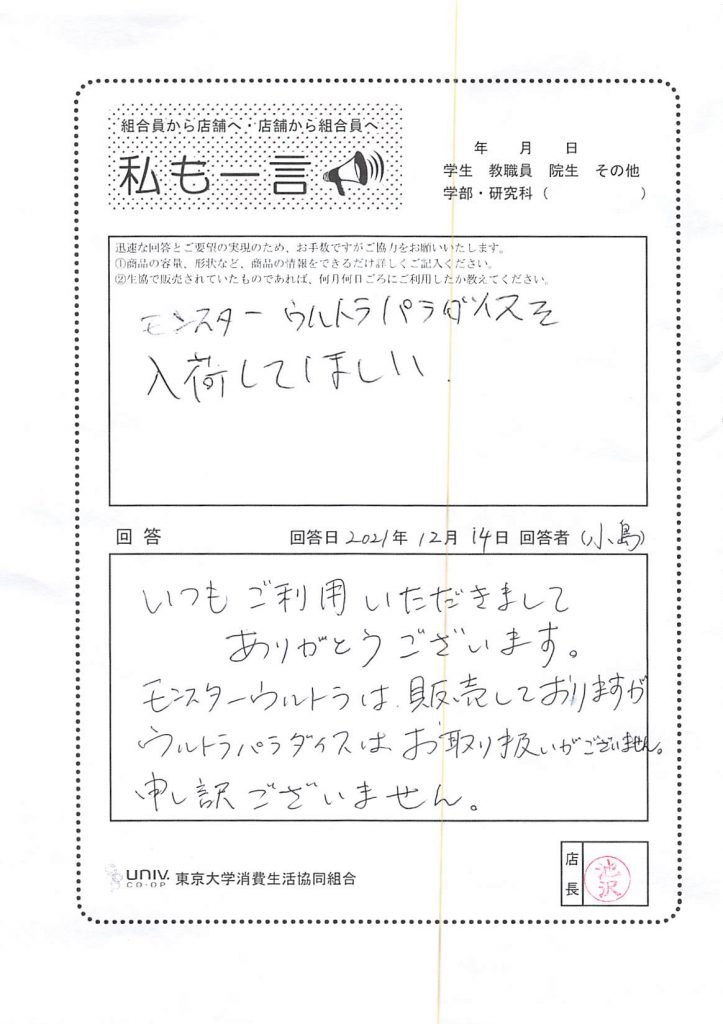 組合員から店舗へ・店舗から組合員へ
私も一言
年 月 日
学生 教職員 院生 その他
学部・研究科( )
迅速な回答とご要望の実現のため、お手数ですがご協力をお願いいたします。
①商品の容量、形状など、商品の情報をできるだけ詳しくご記入ください。
②生協で販売されていたものであれば、何月何日ごろにご利用したか教えてください。
モンスター ウルトラパラダイスを
入荷してほしい.
回答 回答日 2021年 12月 14日 回答者 (小島)
いつもご利用いただきまして
ありがとうございます。
モンスターウルトラは、販売しておりますが
ウルトラパラダイスはお取り扱いがございません。
申し訳ございません。
UNIV. CO-OP 東京大学消費生活協同組合
店長 池沢